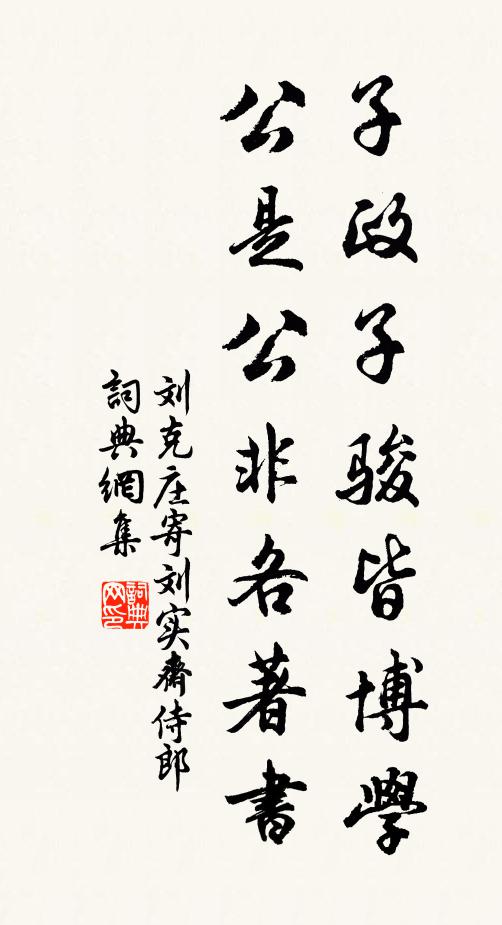 子政子骏皆博學
公是公非各著書
刘克庄寄刘实斋侍郎
詞典網集
詞典网印